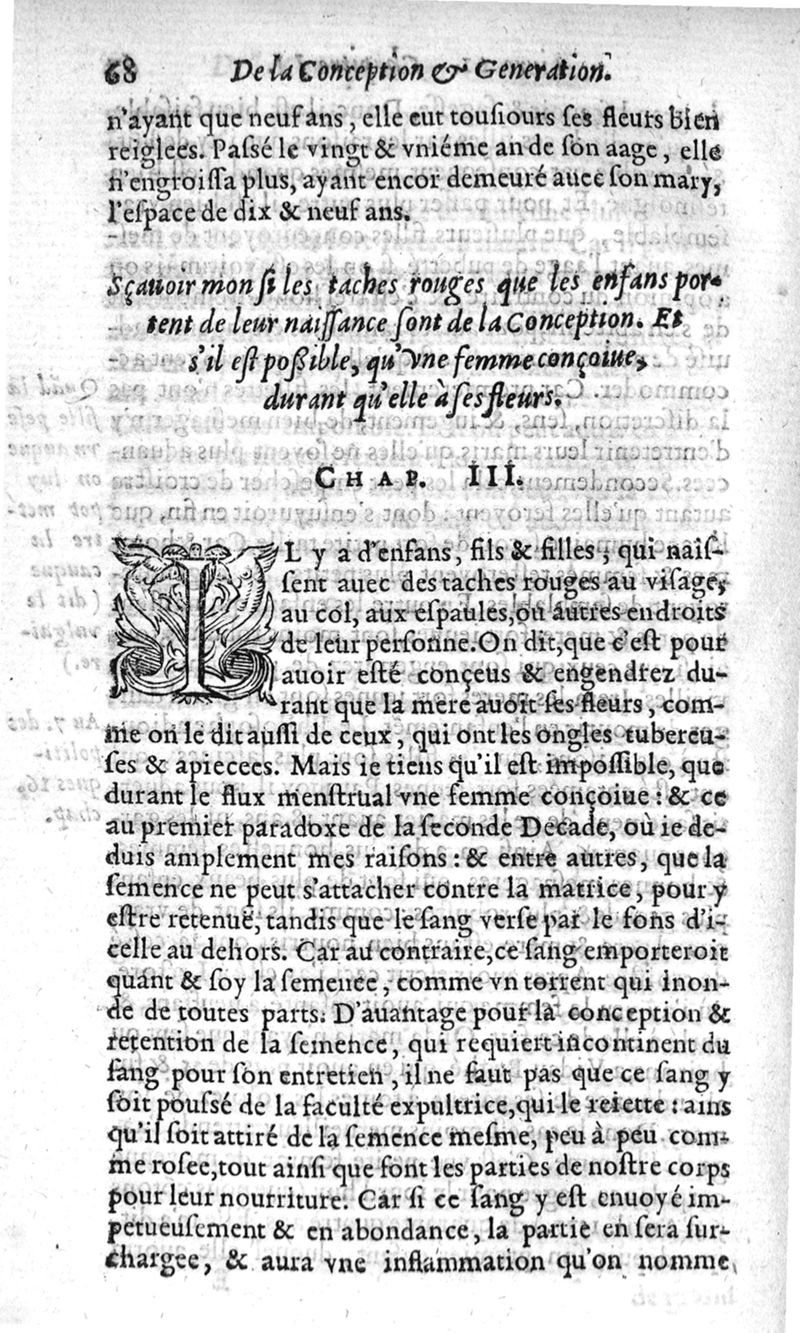 68 De la Conception & Generation.
n'ayant que neuf ans, elle eut tousiours ses fleurs bien
reiglees. Passé le vingt & vniéme an de son aage, elle
n'engroissa plus, ayant encor demeuré auec son mary,
l'espace de dix & neuf ans.
Sçauoir mon si les taches rouges que les enfans por-
tent de leur naissance sont de la Conception. Et
s'il est possible, qu'vne femme conçoiue,
durant qu'elle à ses fleurs.
CHAP. III.
IL y a d'enfans, fils & filles, qui nais-
sent auec des taches rouges au visage,
au col, aux espaules, ou autres endroits
de leur personne. On dit, que c'est pour
auoir esté conçeus & engendrez du-
rant que la mere auoit ses fleurs, com-
me on le dit aussi de ceux, qui ont les ongles tubereu-
ses & apiecees. Mais ie tiens qu'il est impossible, que
durant le flux menstrual vne femme conçoiue: & ce
au premier paradoxe de la seconde Decade, où ie de-
duis amplement mes raisons: & entre autres, que la
semence ne peut s'attacher contre la matrice, pour y
estre retenuë, tandis que le sang verse par le fons d'i-
celle au dehors. Car au contraire, ce sang emporteroit
quant & soy la semence, comme vn torrent qui inon-
de de toutes parts. D'auantage pour la conception &
retention de la semence, qui requiert incontinent du
sang pour son entretien, il ne faut pas que ce sang y
soit poussé de la faculté expultrice, qui le reiette: ains
qu'il soit attiré de la semence mesme, peu à peu com-
me rosee, tout ainsi que font les parties de nostre corps
pour leur nourriture. Car si ce sang y est enuoyé im-
petueusement & en abondance, la partie en sera sur-
chargee, & aura vne inflammation qu'on nomme